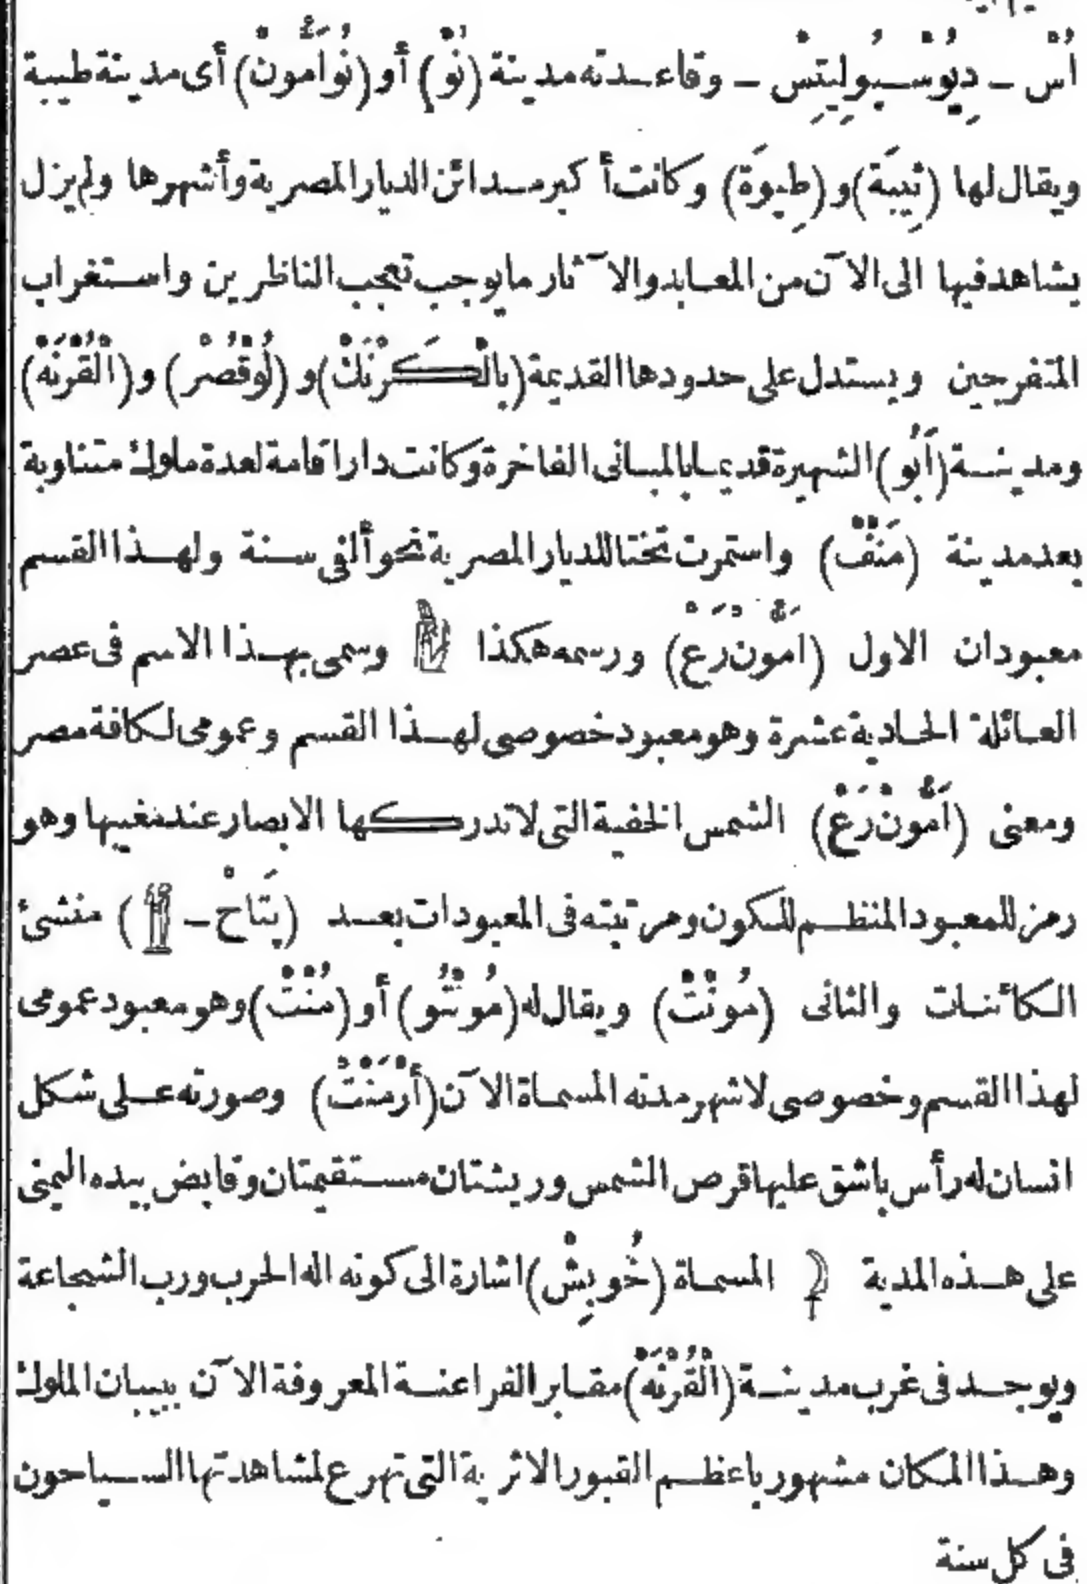 أُسْ - دِيُوْسْبُولِيتِسْ - وقاعدته مدينة (نُوْ) أو (نُوْأَمُّونْ) أى مدينة طيبة
ويقال لها (ثِيبَة) و (طِيوَة) وكانت أكبر مدائن الديار المصرية وأشهرها ولم يزل
يشاهد فيها الى الآن من المعابد والآثار ما يوجب تعجب الناظرين واستغراب
المتفرجين ويستدل على حدودها القديمة (بِالْكَرْنَكْ) و (لُوقْصُرْ) و (الْقُرْنَهْ)
ومدينة (أَبُو) الشهيرة قديما بالمبانى الفاخرة وكانت دار اقامة لعدة ملوك متناوبة
بعد مدينة (مَنْفْ) واستمرت تختا للديار المصرية نحو ألفى سنة ولهذا القسم
معبودان الاول (امُّونْ رَعْ) ورسمه هكذا وسمى بهذا الاسم فى عصر
العائلة الحادية عشرة وهو معبود خصوصى لهذا القسم وعمومى لكافة مصر
ومعنى (أَمُّونْ رَعْ) الشمس الخفية التى لا تدركها الابصار عند مغيبها وهو
رمز للمعبود المنظم للكون ومرتبته فى المعبودات بعد (پتَاحْ - ) منشئ
الكائنات والثانى (مُونْتْ) ويقال له (مُونْتُو) أو (مُنْتْ) وهو معبود عمومى
لهذا القسم وخصوصى لاشهر مدنه المسماة الآن (أَرْمَنْتْ) وصورته على شكل
انسان له رأس باشق عليها قرص الشمس وريشتان مستقيمتان وقابض بيده اليمنى
على هذه المدية المسماة (خُوبِشْ) اشارة الى كونه اله الحرب ورب الشجاعة
ويوجد فى غرب مدينة (الْقُرْنَهْ) مقابر الفراعنة المعروفة الآن ببيبان الملوك
وهذا المكان مشهور باعظم القبور الاثرية التى تهرع لمشاهدتها السياحون
فى كل سنة